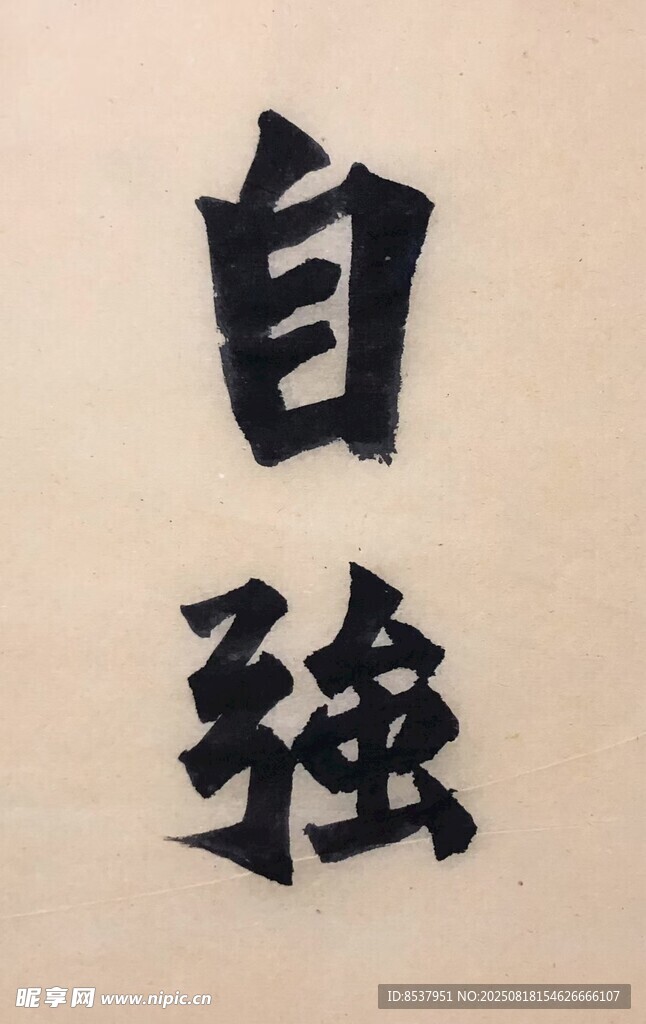 自
強
昵享网 www.nipic.cn
ID:8537951 NO:20250818154626666107